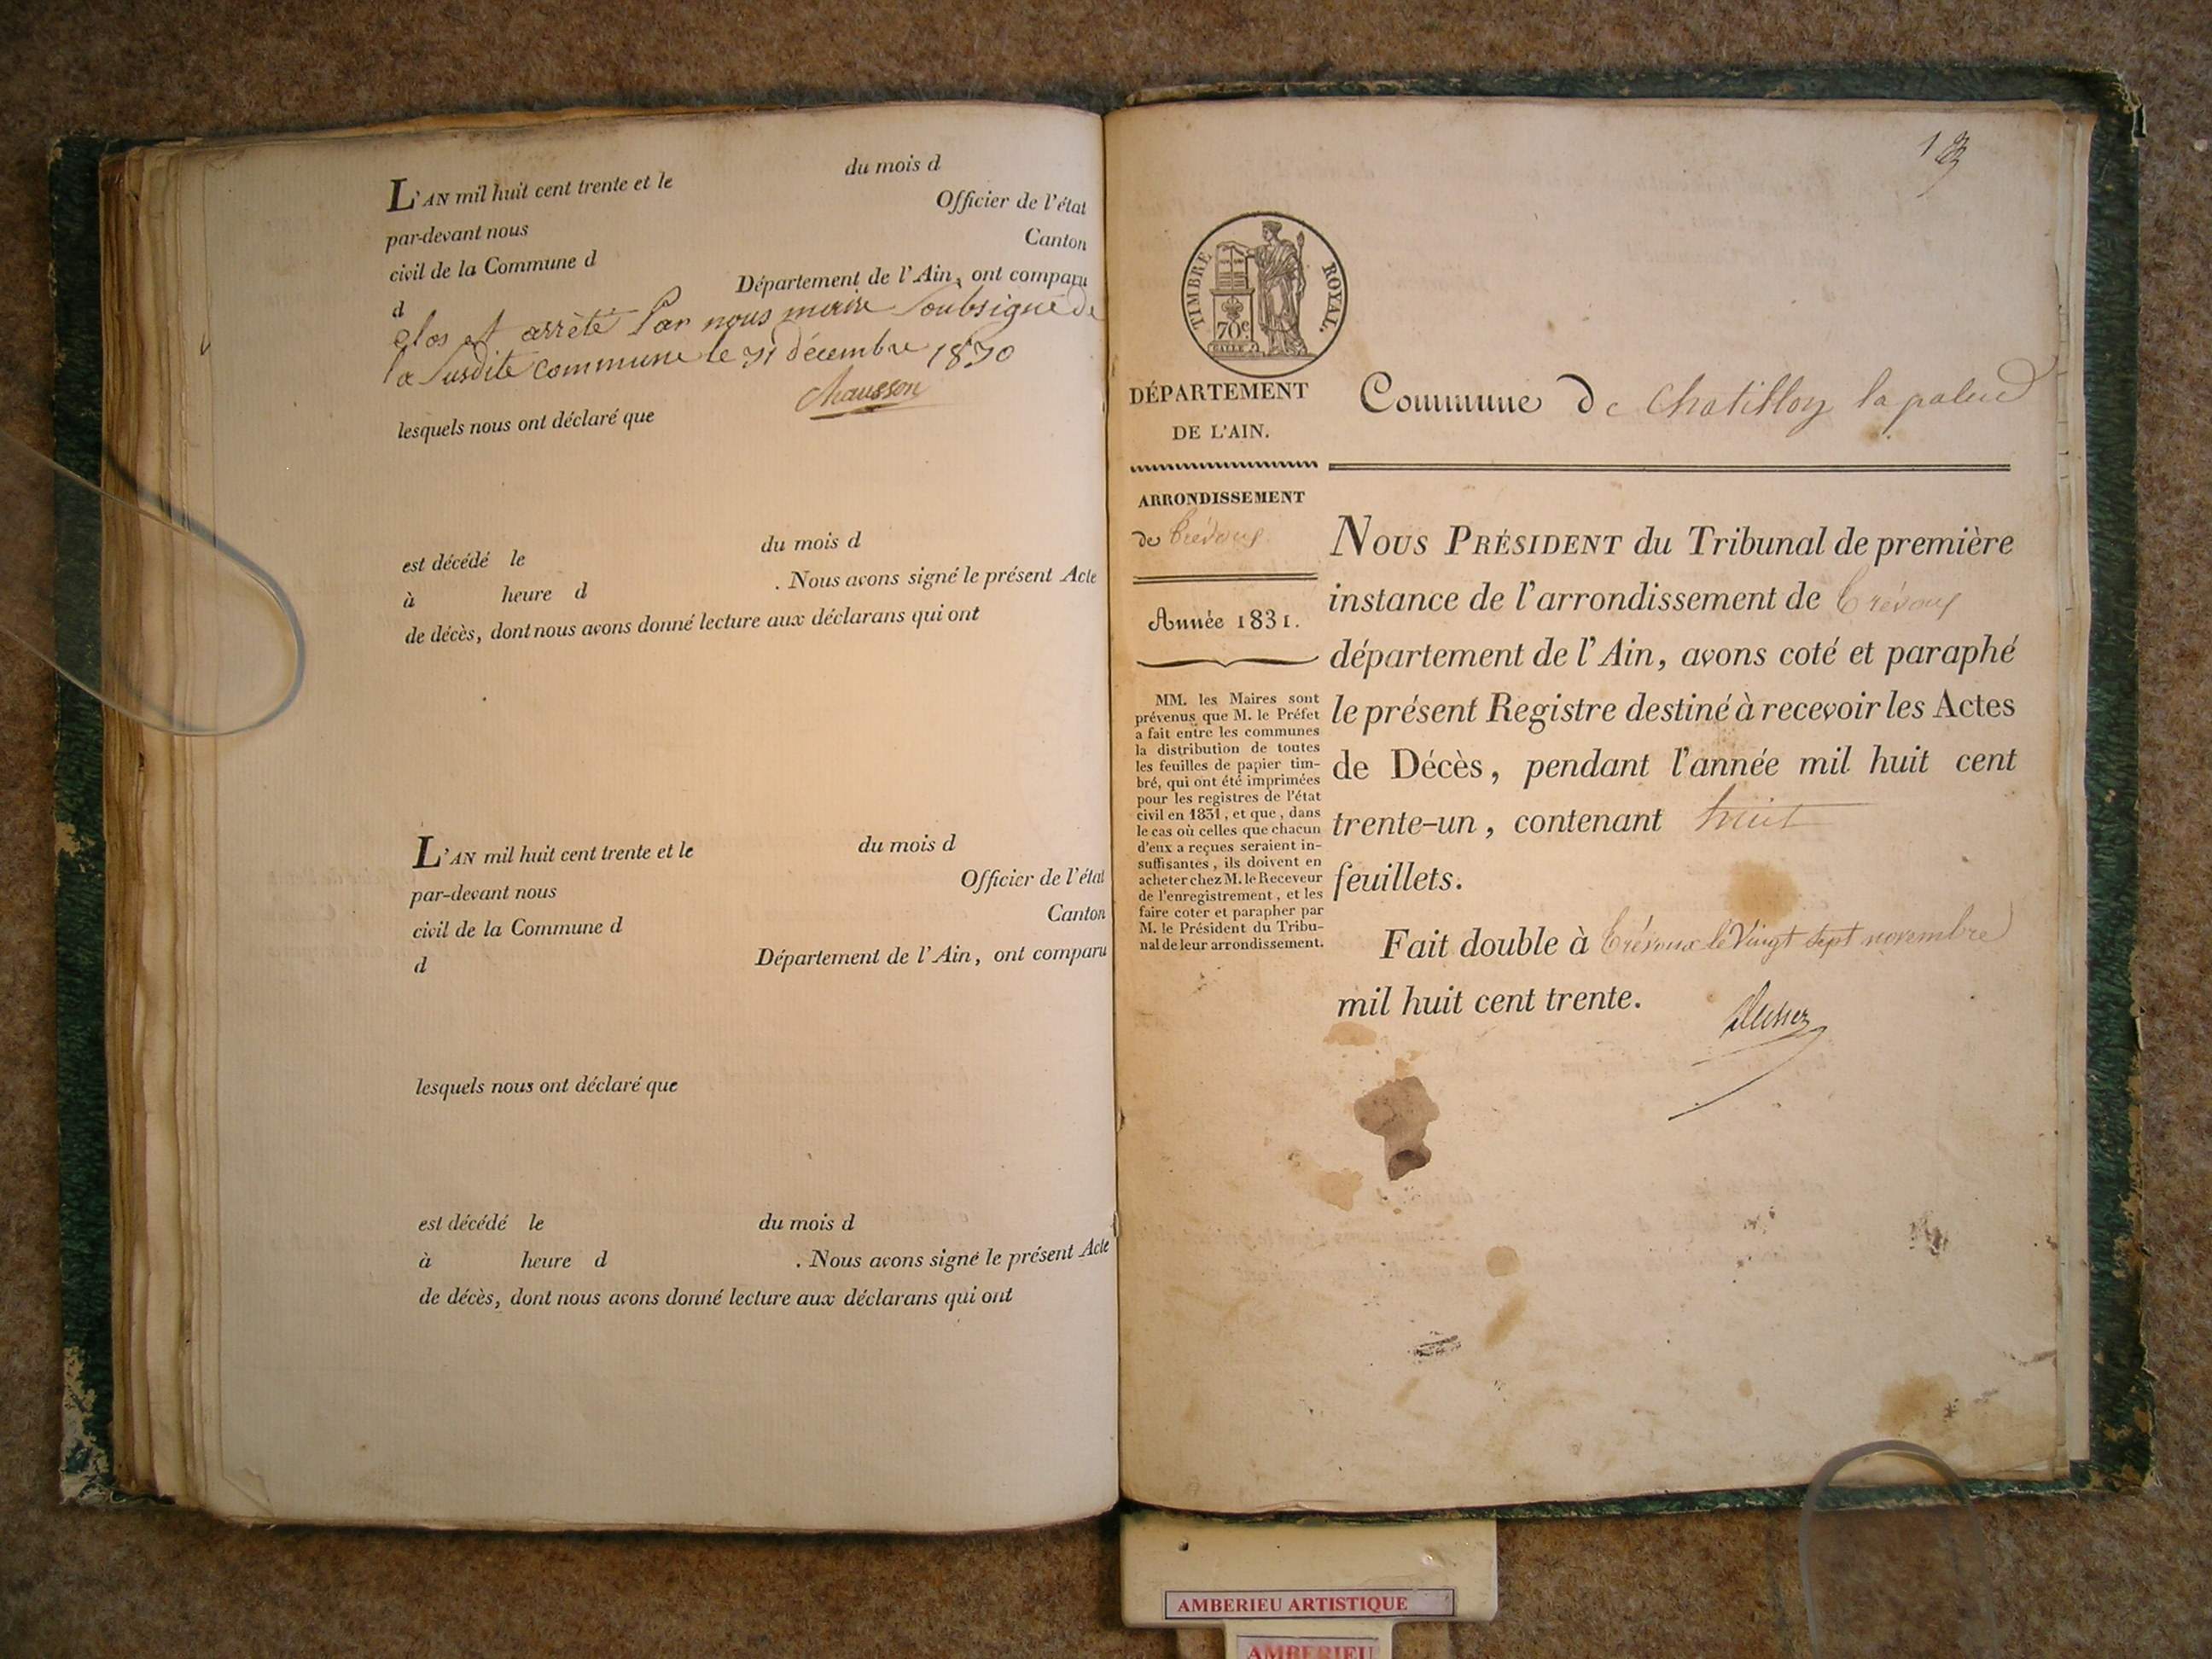 L'AN mil huit cent trente et le du mois d
par-devant nous Officier de l'état
civil de la Commune d Canton
d Département de l'Ain, ont comparu
clos et arrêté par nous maire soubsigné de
la susdite commune le 31 décembre 1830
chausson
lesquels nous ont déclaré que
est décédé le du mois d
à heure d . Nous avons signé le présent Acte
de décès, dont nous avons donné lecture aux déclarans qui ont
L'AN mil huit cent trente et le du mois d
par-devant nous Officier de l'état
civil de la Commune d Canton
d Département de l'Ain, ont comparu
lesquels nous ont déclaré que
est décédé le du mois d
à heure d . Nous avons signé le présent Acte
de décès, dont nous avons donné lecture aux déclarans qui ont
TIMBRE ROYAL.
70c
DÉPARTEMENT
DE L'AIN.
Commune de chatillon la palud
ARRONDISSEMENT
de Trévoux
Année 1831.
MM. les Maires sont
prévenus que M. le Préfet
a fait entre les communes
la distribution de toutes
les feuilles de papier tim-
bré, qui ont été imprimées
pour les registres de l'état
civil en 1831, et que, dans
le cas où celles que chacun
d'eux a reçues seraient in-
suffisantes, ils doivent en
acheter chez M. le Receveur
de l'enregistrement, et les
faire coter et parapher par
M. le Président du Tribu-
nal de leur arrondissement.
NOUS PRÉSIDENT du Tribunal de première
instance de l'arrondissement de Trévoux
département de l'Ain, avons coté et paraphé
le présent Registre destiné à recevoir les Actes
de Décès, pendant l'année mil huit cent
trente-un, contenant huit
feuillets.
Fait double à Trévoux le Vingt sept novembre
mil huit cent trente.
AMBERIEU ARTISTIQUE
AMBERIEU